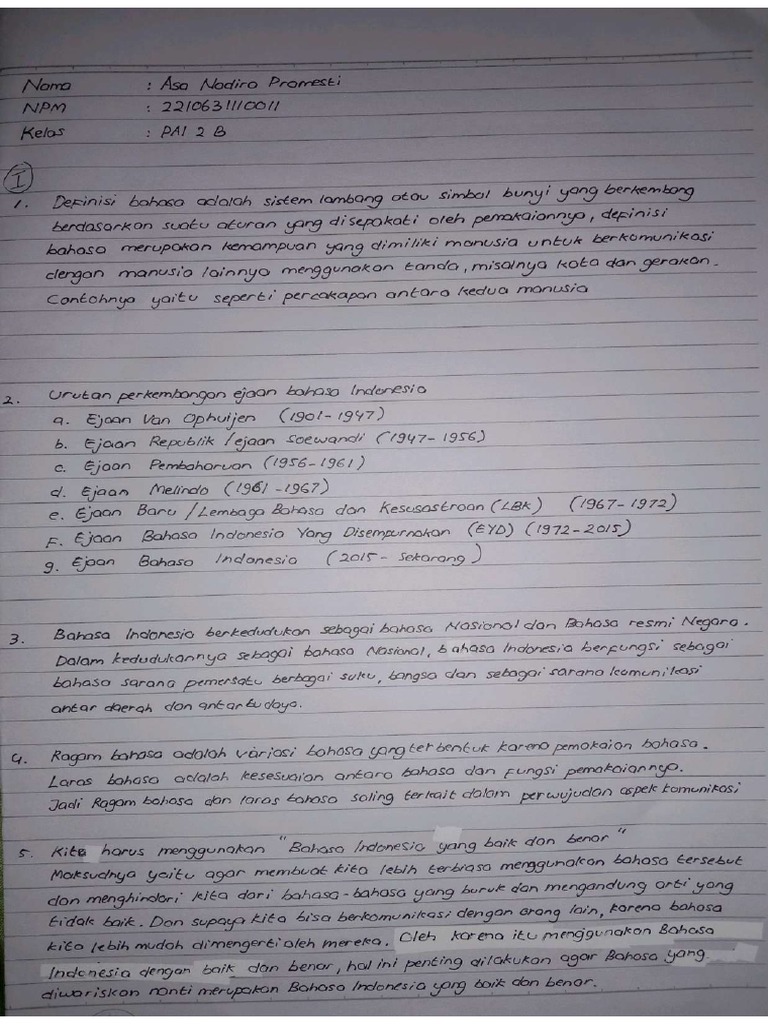 Nama : Asa Nadira Pramesti
NPM : 2210631110011
Kelas : PAI 2 B
I
1. Definisi bahasa adalah sistem lambang atau simbol bunyi yang berkembang
berdasarkan suatu aturan yang disepakati oleh pemakaiannya, definisi
bahasa merupakan kemampuan yang dimiliki manusia untuk berkomunikasi
dengan manusia lainnya menggunakan tanda, misalnya kata dan gerakan.
Contohnya yaitu seperti percakapan antara kedua manusia
2. Urutan perkembangan ejaan bahasa Indonesia
a. Ejaan Van Ophuijen (1901-1947)
b. Ejaan Republik /ejaan soewandi (1947-1956)
c. Ejaan Pembaharuan (1956-1961)
d. Ejaan Melindo (1961-1967)
e. Ejaan Baru /Lembaga Bahasa dan Kesusastraan (LBK) (1967-1972)
F. Ejaan Bahasa Indonesia Yang Disempurnakan (EYD) (1972-2015)
g. Ejaan Bahasa Indonesia (2015 - Sekarang)
3. Bahasa Indonesia berkedudukan sebagai bahasa Nasional dan Bahasa resmi Negara.
Dalam kedudukannya sebagai bahasa Nasional, bahasa Indonesia berfungsi sebagai
bahasa sarana pemersatu berbagai suku, bangsa dan sebagai sarana komunikasi
antar daerah dan antarbudaya.
4. Ragam bahasa adalah variasi bahasa yang terbentuk karena pemakaian bahasa.
Laras bahasa adalah kesesuaian antara bahasa dan fungsi pemakaiannya.
Jadi Ragam bahasa dan laras bahasa saling terkait dalam perwujudan aspek komunikasi
5. Kita harus menggunakan "Bahasa Indonesia yang baik dan benar"
Maksudnya yaitu agar membuat kita lebih terbiasa menggunakan bahasa tersebut
dan menghindari kita dari bahasa-bahasa yang buruk dan mengandung arti yang
tidak baik. Dan supaya kita bisa berkomunikasi dengan orang lain, karena bahasa
kita lebih mudah dimengerti oleh mereka. Oleh karena itu menggunakan Bahasa
Indonesia dengan baik dan benar, hal ini penting dilakukan agar Bahasa yang
diwariskan nanti merupakan Bahasa Indonesia yang baik dan benar.